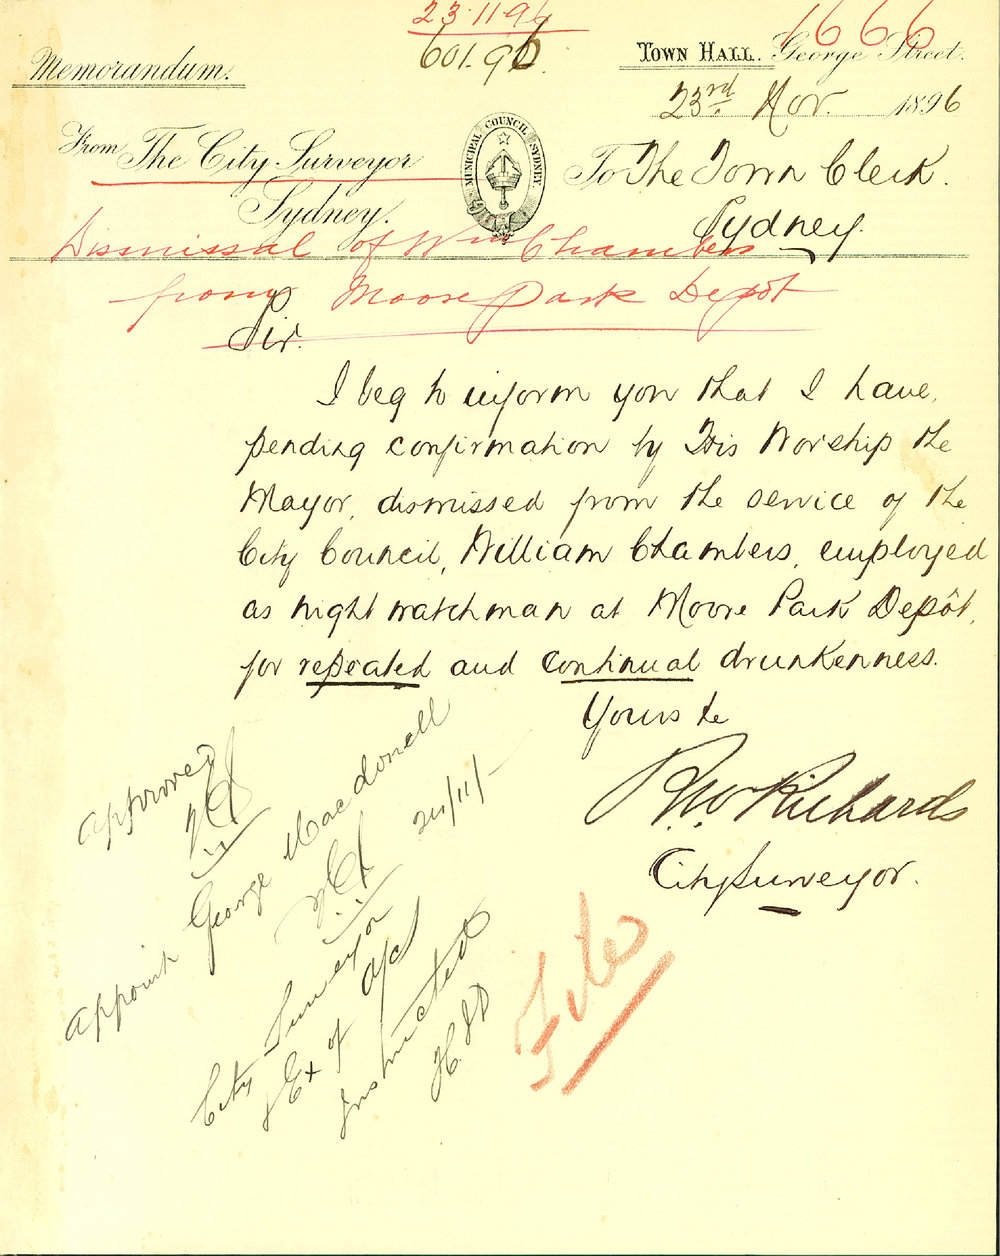 23·11·96
601.96.
1666
Memorandum.
TOWN HALL. George Street.
23rd Nov. 1896
From The City Surveyor
Sydney.
MUNICIPAL COUNCIL SYDNEY.
To The Town Clerk.
Sydney.
Dismissal of Wm Chambers
from Moore Park Depôt
Sir.
I beg to inform you that I have,
pending confirmation by His Worship the
Mayor, dismissed from the service of the
City Council, William Chambers, employed
as night watchman at Moore Park Depôt,
for repeated and continual drunkenness.
Yours &c
R.W. Richards
City Surveyor.
Approved
Appoint George Macdonell
24/11/-
City Surveyor
& Ex of a/cs
Instructed
H.J.D
File